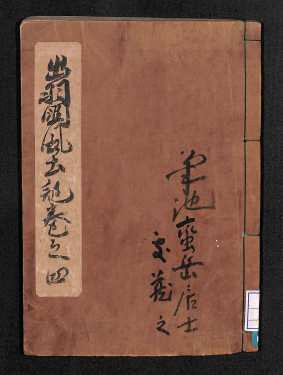 出羽国風土記巻之四
菊池蛮岳居士
家蔵之